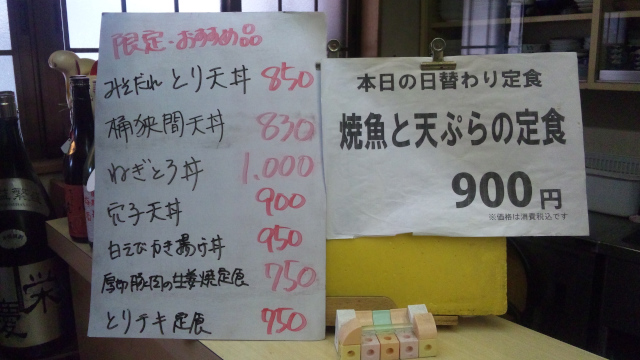 限定・おすすめ品
みそだれ とり天丼 850
桶狭間天丼 830
ねぎとろ丼 1.000
穴子天丼 900
白えびかき揚げ丼 950
厚切豚肉の生姜焼定食 750
とりテキ定食 950
本日の日替わり定食
焼魚と天ぷらの定食
900円
※価格は消費税込です